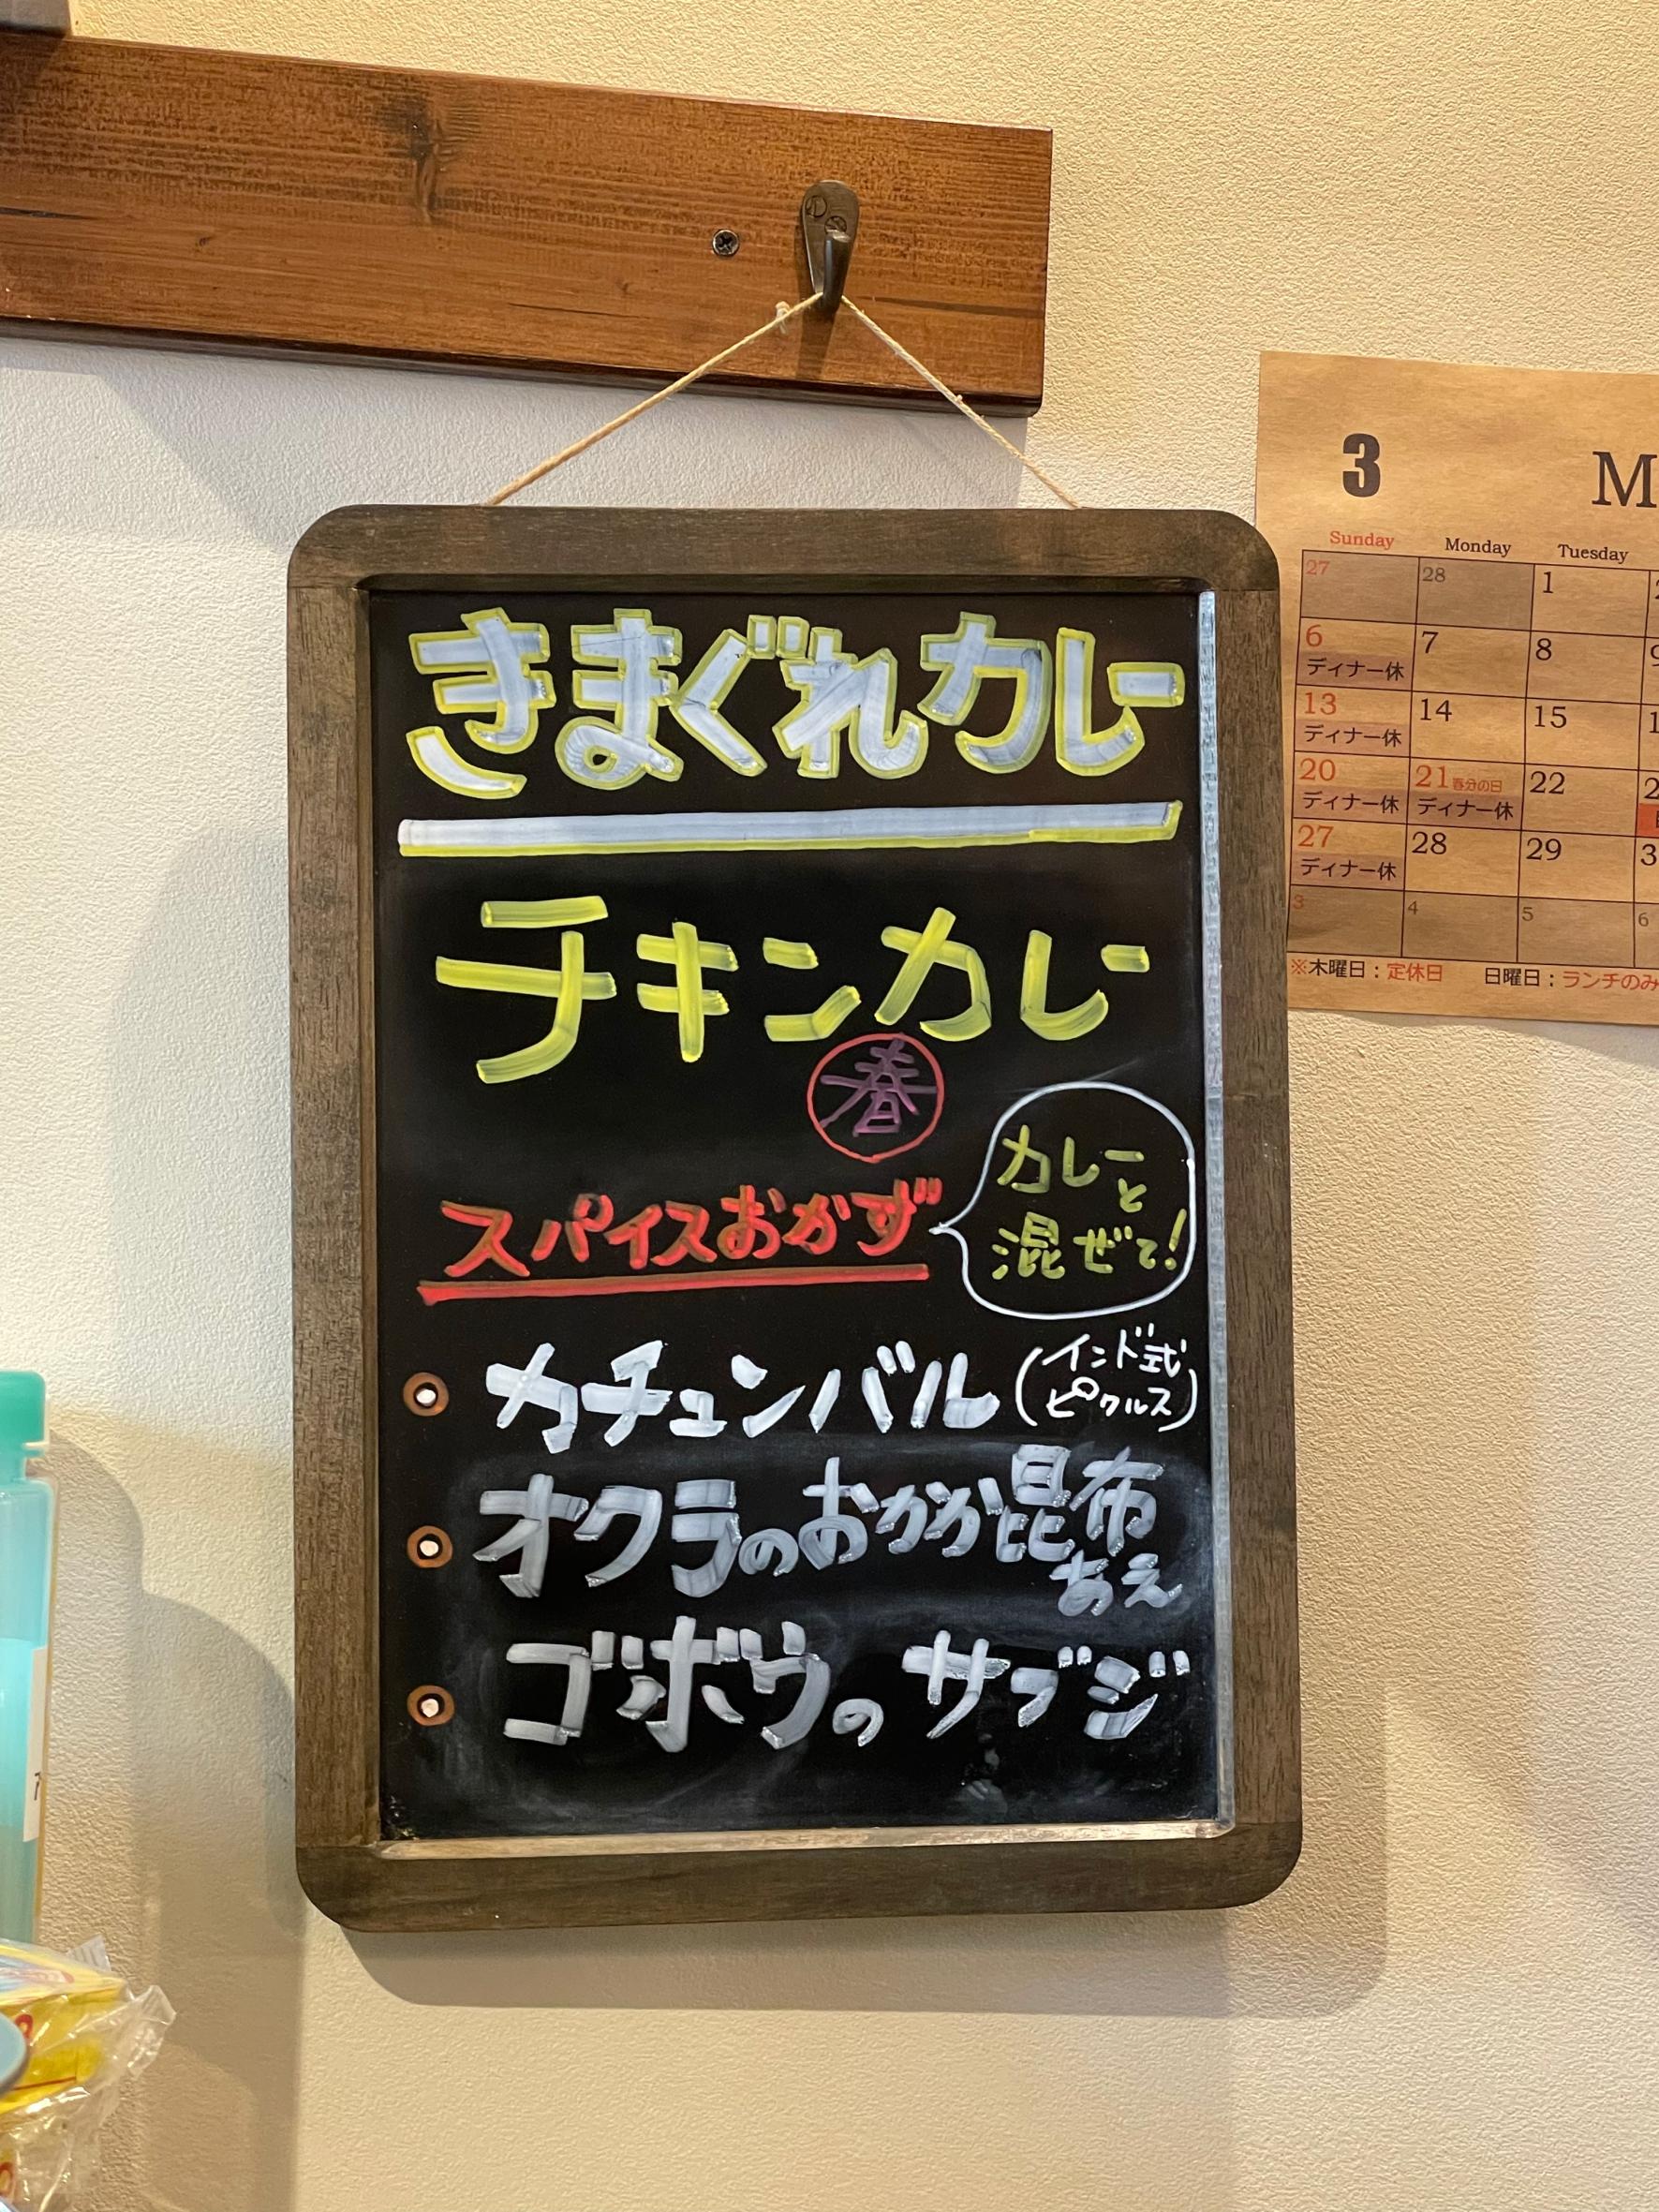 きまぐれカレー
チキンカレー
春
スパイスおかず
カレーと
混ぜて!
・カチュンバル
(インド式
ピクルス)
・オクラのおかか昆布
あえ
・ゴボウのサブジ
3
M
Sunday Monday Tuesday
27 28 1
6 7 8
ディナー休
13 14 15
ディナー休
20 21春分の日 22
ディナー休 ディナー休
27 28 29
ディナー休
3 4 5 6
※木曜日:定休日 日曜日:ランチのみ